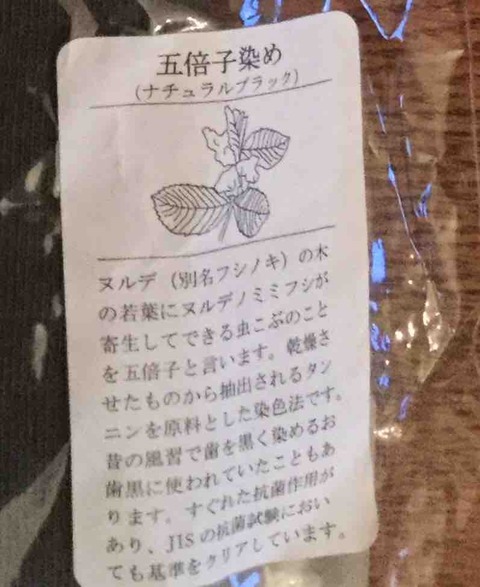 五倍子染め
(ナチュラルブラック)
ヌルデ（別名フシノキ）の木
の若葉にヌルデノミミフシが
寄生してできる虫こぶのこと
を五倍子と言います。乾燥さ
せたものから抽出されるタン
ニンを原料とした染色法です。
昔の風習で歯を黒く染めるお
歯黒に使われていたこともあ
ります。すぐれた抗菌作用が
あり、JISの抗菌試験におい
ても基準をクリアしています。